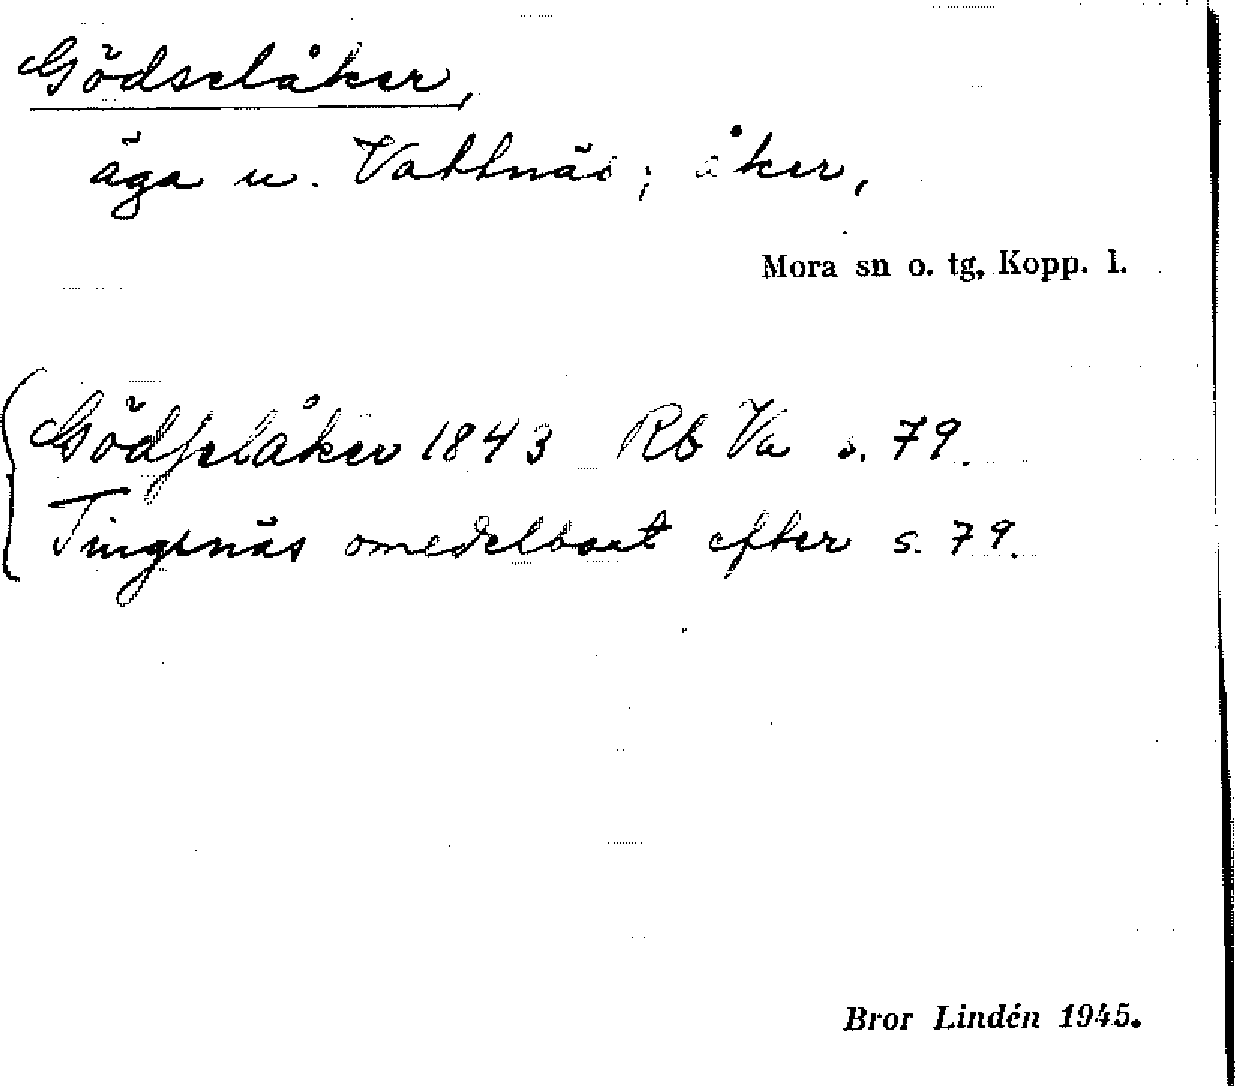 Gödselåker,
äga u. Vattnäs; åker,
Mora sn o. tg, Kopp. l.
Gödſelåker 1843 Rb Va s. 79.
Tingsnäs omedelbart efter s. 79.
Bror Lindén 1945.